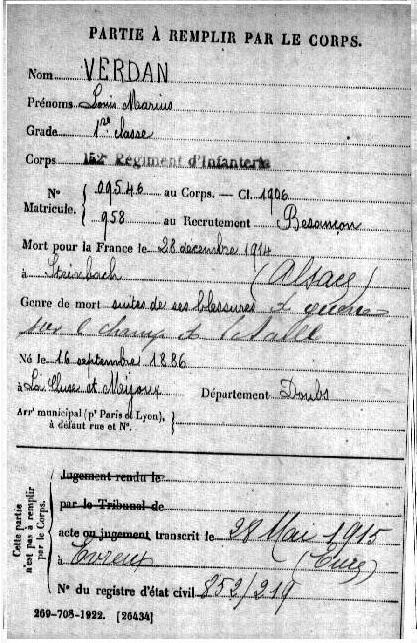 PARTIE À REMPLIR PAR LE CORPS.
Nom VERDAN
Prénoms Louis Marius
Grade 1re classe
Corps 152e Régiment d'Infanterie
N° Matricule. { 09546 au Corps. — Cl. 1906
958 au Recrutement Besançon
Mort pour la France le 28 décembre 1914
à Steinbach (Alsace)
Genre de mort suites de ses blessures de guerre
sur le champ de bataille
Né le 16 septembre 1886
à La Cluse et Mijoux Département Doubs
Arrt municipal (pr Paris et Lyon),
à défaut rue et N°.
Cette partie n'est pas à remplir par le Corps.
Jugement rendu le
par le Tribunal de
acte ou jugement transcrit le 28 Mai 1915
à Evreux (Eure)
N° du registre d'état civil 852/219
269-708-1922. [26434]